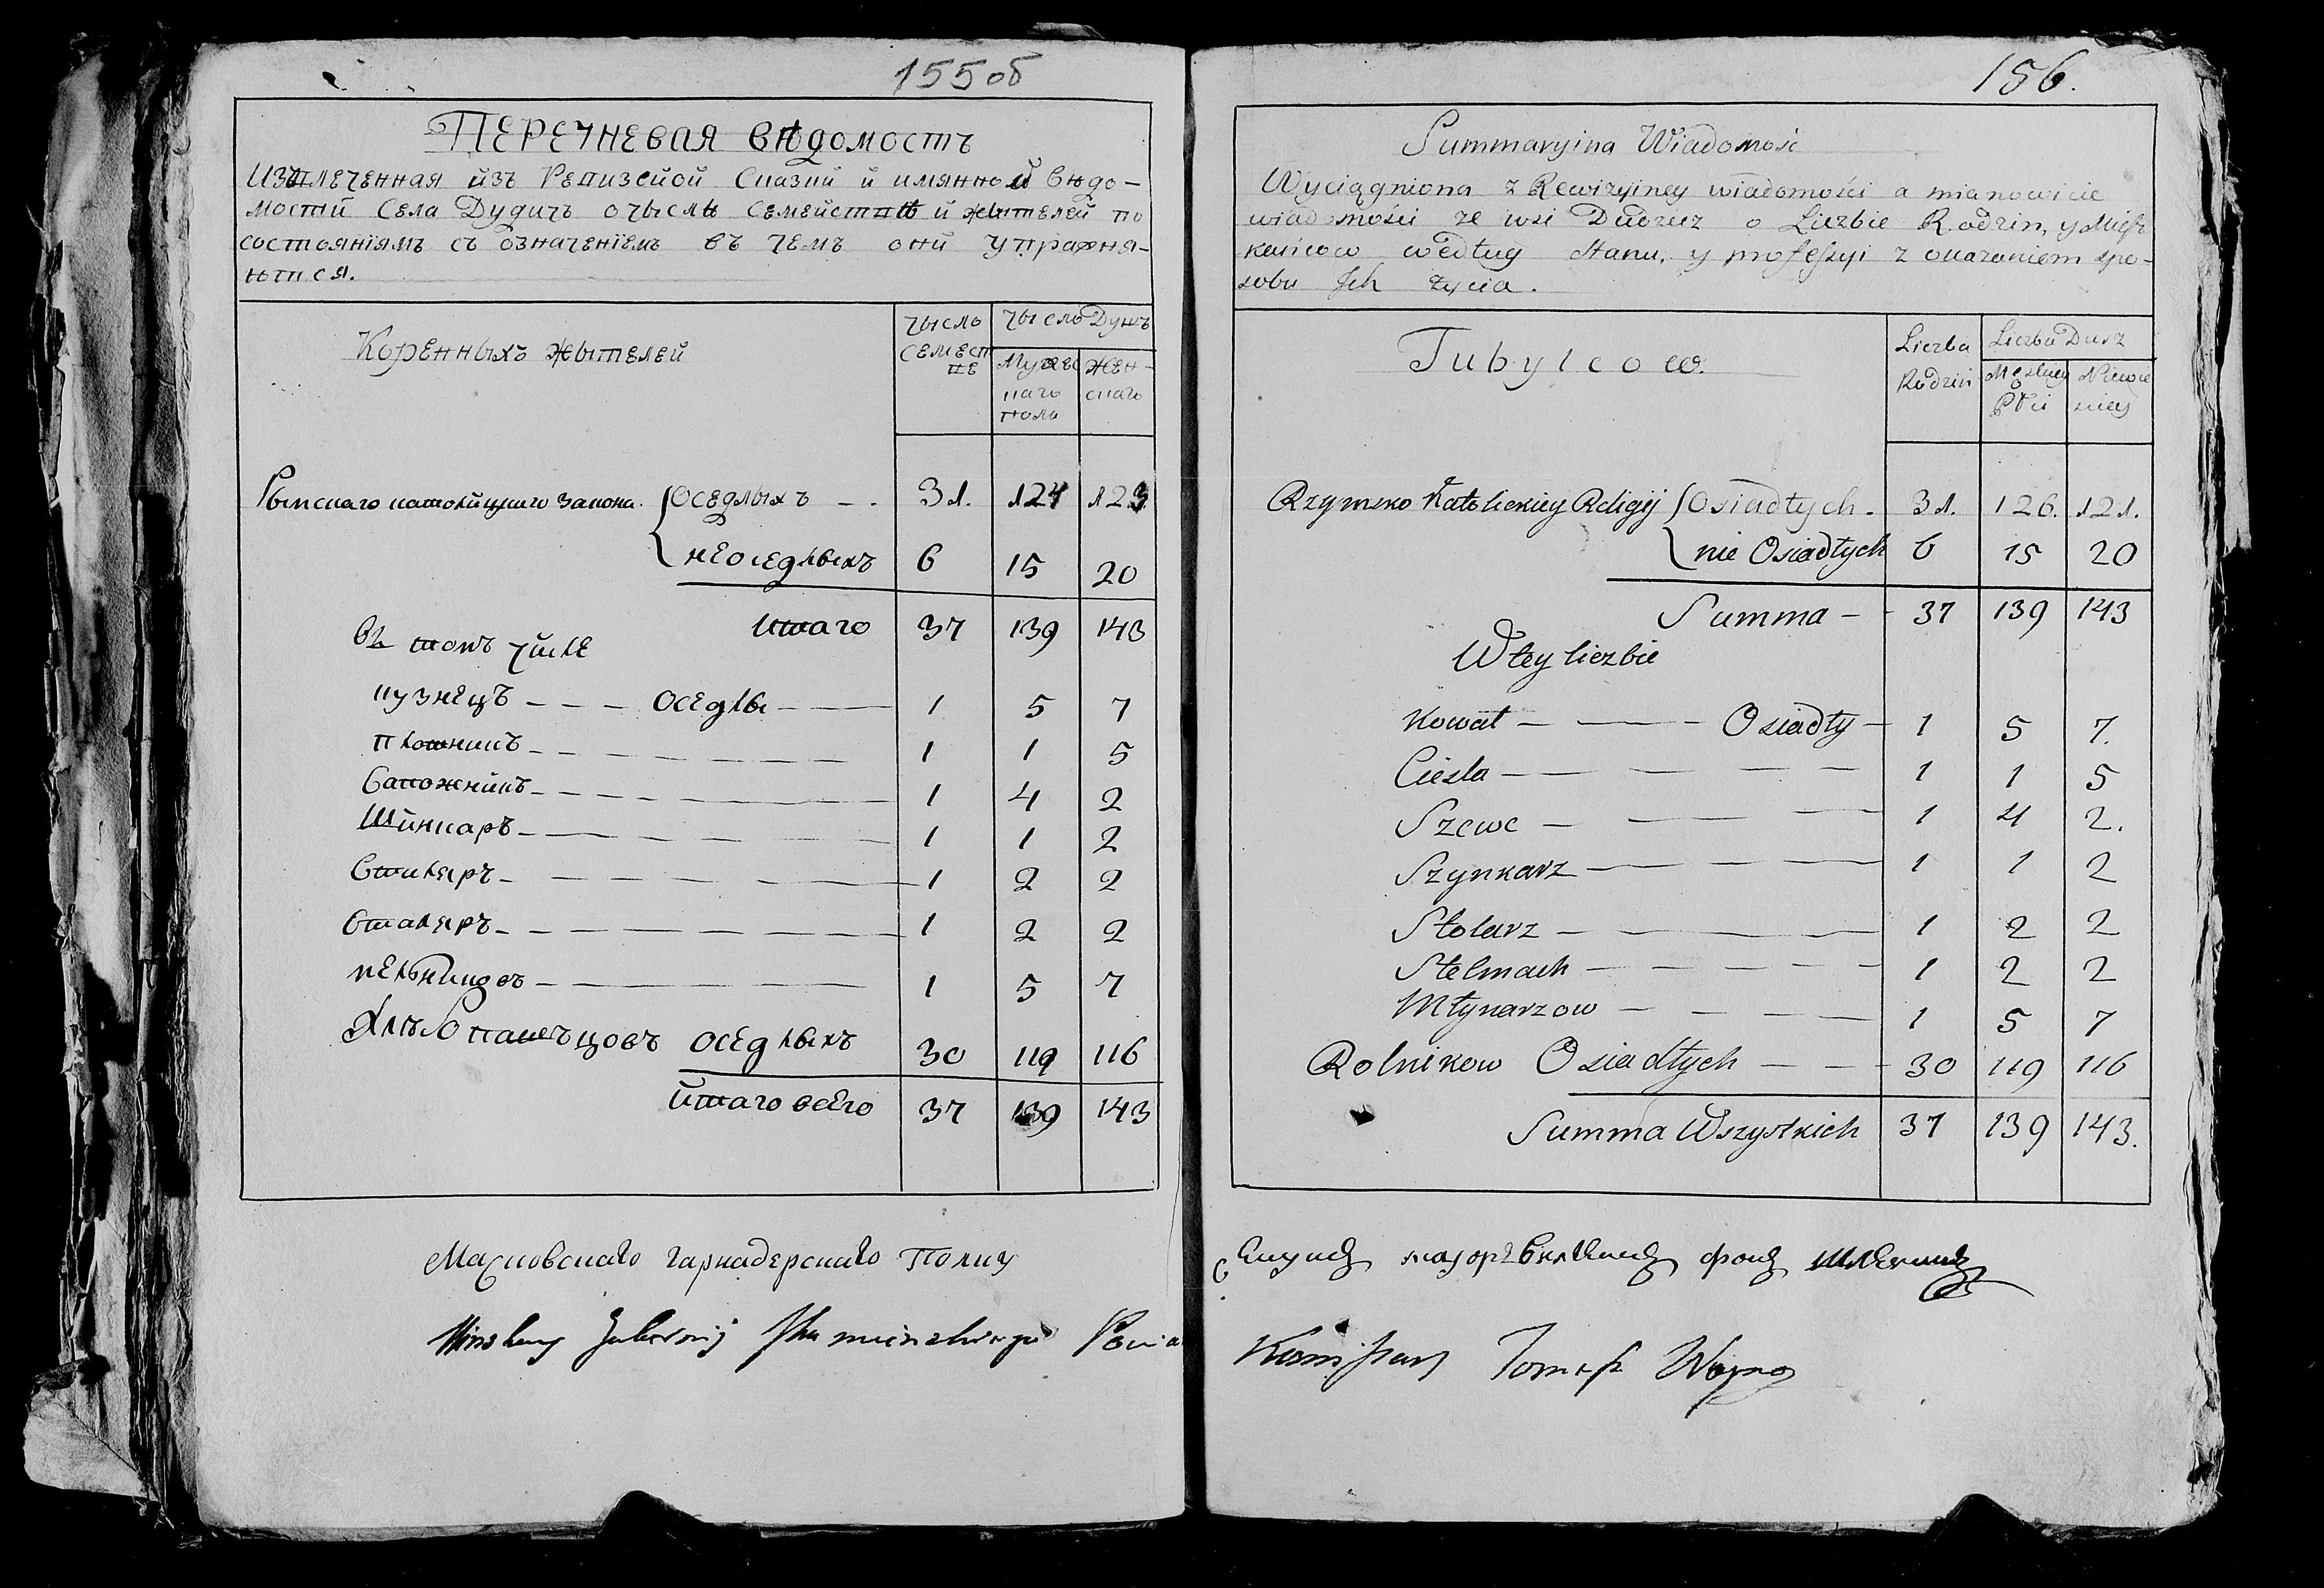 155об
Перечневая вѣдомостъ
Извлеченная йзъ Ревизской Сказки й имянной вѣдо-
мостй Села Дудичъ очыслѣ Семействъ й жытелей по
состоянїямъ съ означенїемъ въ чемъ онй упражня-
ются.
Коренныхъ жытелей
чысло Семест
ве
чысло Душъ
Мужес
каго
пола
Жен-
скаго
Рымскаго католйцкаго Закона. Оседлыхъ 31. 124 123.
неоседлыхъ 6 15 20
итаго 37 139 143
въ томъ чйсле
кузнецъ оседлы 1 5 7
плотникъ 1 1 5
Сапожнйкъ 1 4 2
Шйнкаръ 1 1 2
Столяръ 1 2 2
Сталяръ 1 2 2
мельниковъ 1 5 7
Хлѣбопашъцовъ оседлыхъ 30 119 116
йтаго всего 37 139 143
Московскаго гарнадерскаго Полку
Minskiey Gubernij Ihumienskiego Powia
156.
Summaryina Wiadomość
Wyciągniona z Rewizyiney wiadomości a mianowicie
wiadomości ze wsi Dudzicz o Liczbie Rodzin, y Miesz
kańcow według Stanu, y professyi z okazaniem spo-
sobu Ich życia.
Tubylcow.
Liczba
Rodzin
Liczba Dusz
Męskiey
Płci
Niewie
skiey
Rzymsko Katolickiey Religij Osiadłych. 31. 126. 121.
nie Osiadłych 6 15 20
Summa 37 139 143
W tey liczbie
Kowal Osiadły 1 5 7.
Ciesla 1 1 5
Szewc 1 4 2.
Szynkarz 1 1 2
Stolarz 1 2 2
Stelmach 1 2 2
Młynarzow 1 5 7
Rolnikow Osiadłych 30 119 116
Summa Wszystkich 37 139 143.
Секундъ маγоръ фонъ
Komissarz Tomasz Woyna